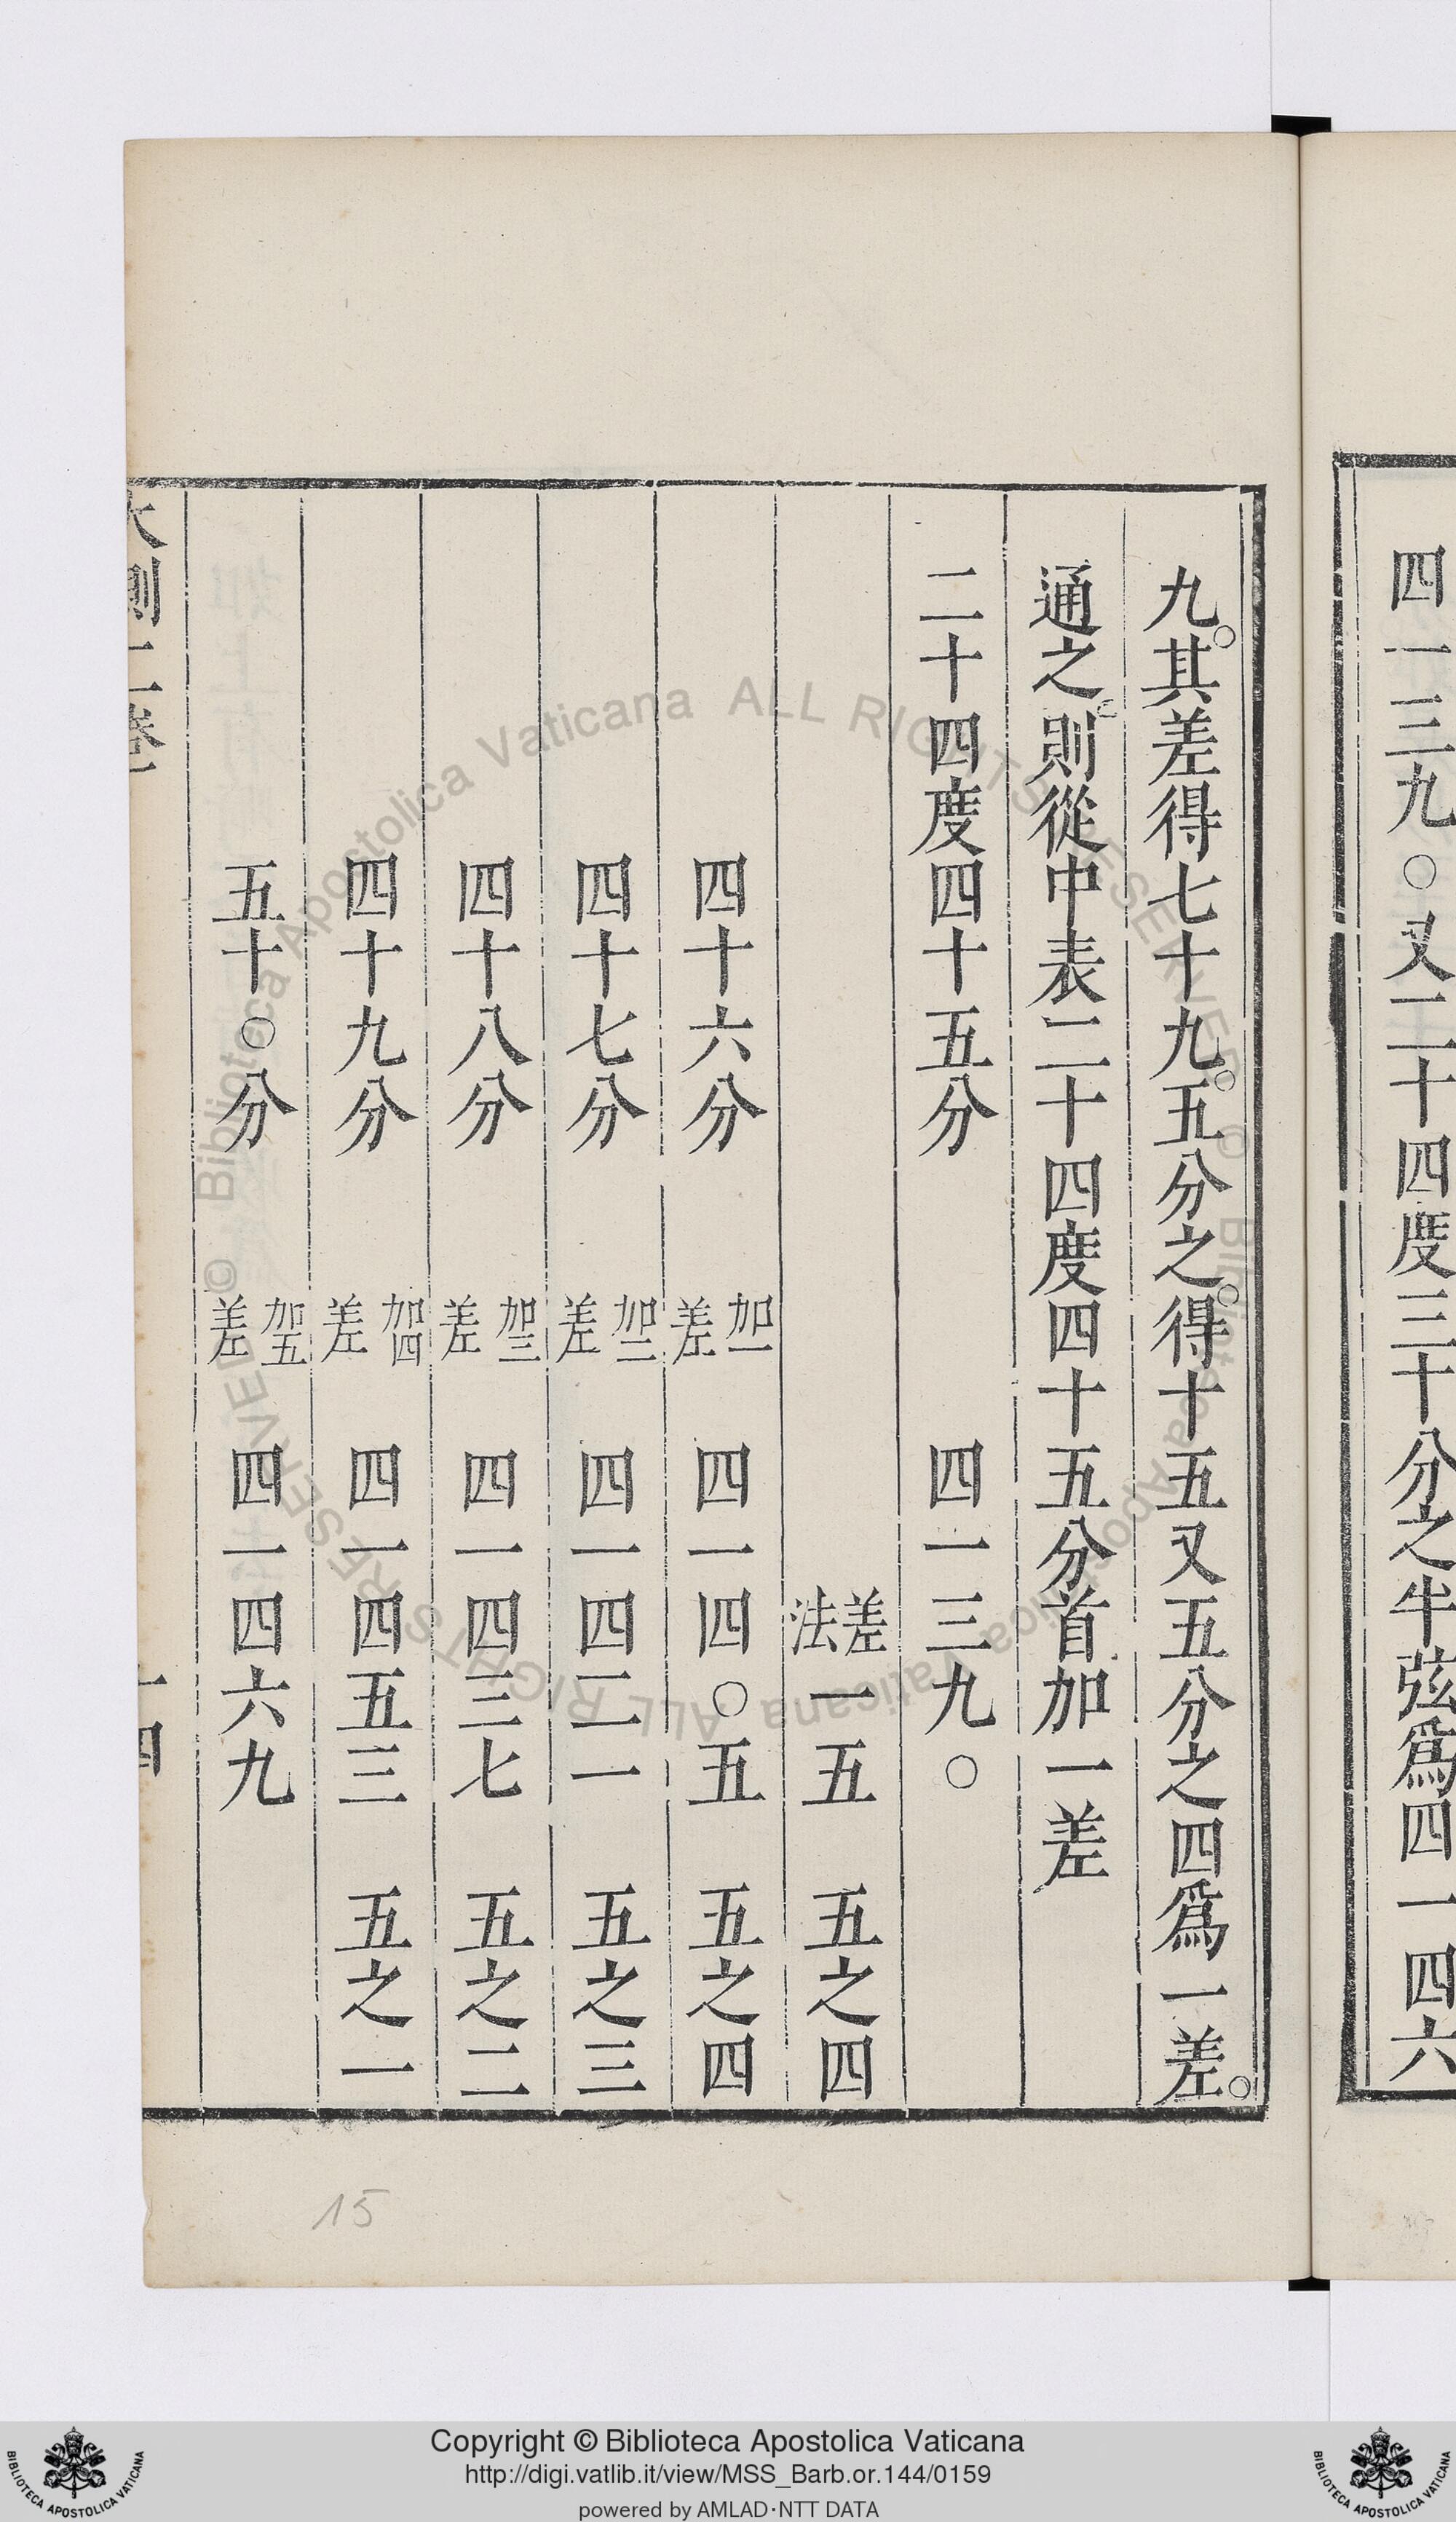 四一三九〇又二十四度三十分之半弦爲四一四六
九其差得七十九五分之得十五又五分之四爲一差
通之則從中表二十四度四十五分首加一差
二十四度四十五分 四一三九〇
差法 一五 五之四
四十六分 加一差 四一四〇五 五之四
四十七分 加二差 四一四二一 五之三
四十八分 加三差 四一四三七 五之二
四十九分 加四差 四一四五三 五之一
五十〇分 加五差 四一四六九
大測二卷 十四
15
© Biblioteca Apostolica Vaticana ALL RIGHTS RESERVED © Biblioteca Apostolica Vaticana ALL RIGHTS RESERVED
Copyright © Biblioteca Apostolica Vaticana
http://digi.vatlib.it/view/MSS_Barb.or.144/0159
powered by AMLAD·NTT DATA
BIBLIOTECA APOSTOLICA VATICANA
BIBLIOTECA APOSTOLICA VATICANA